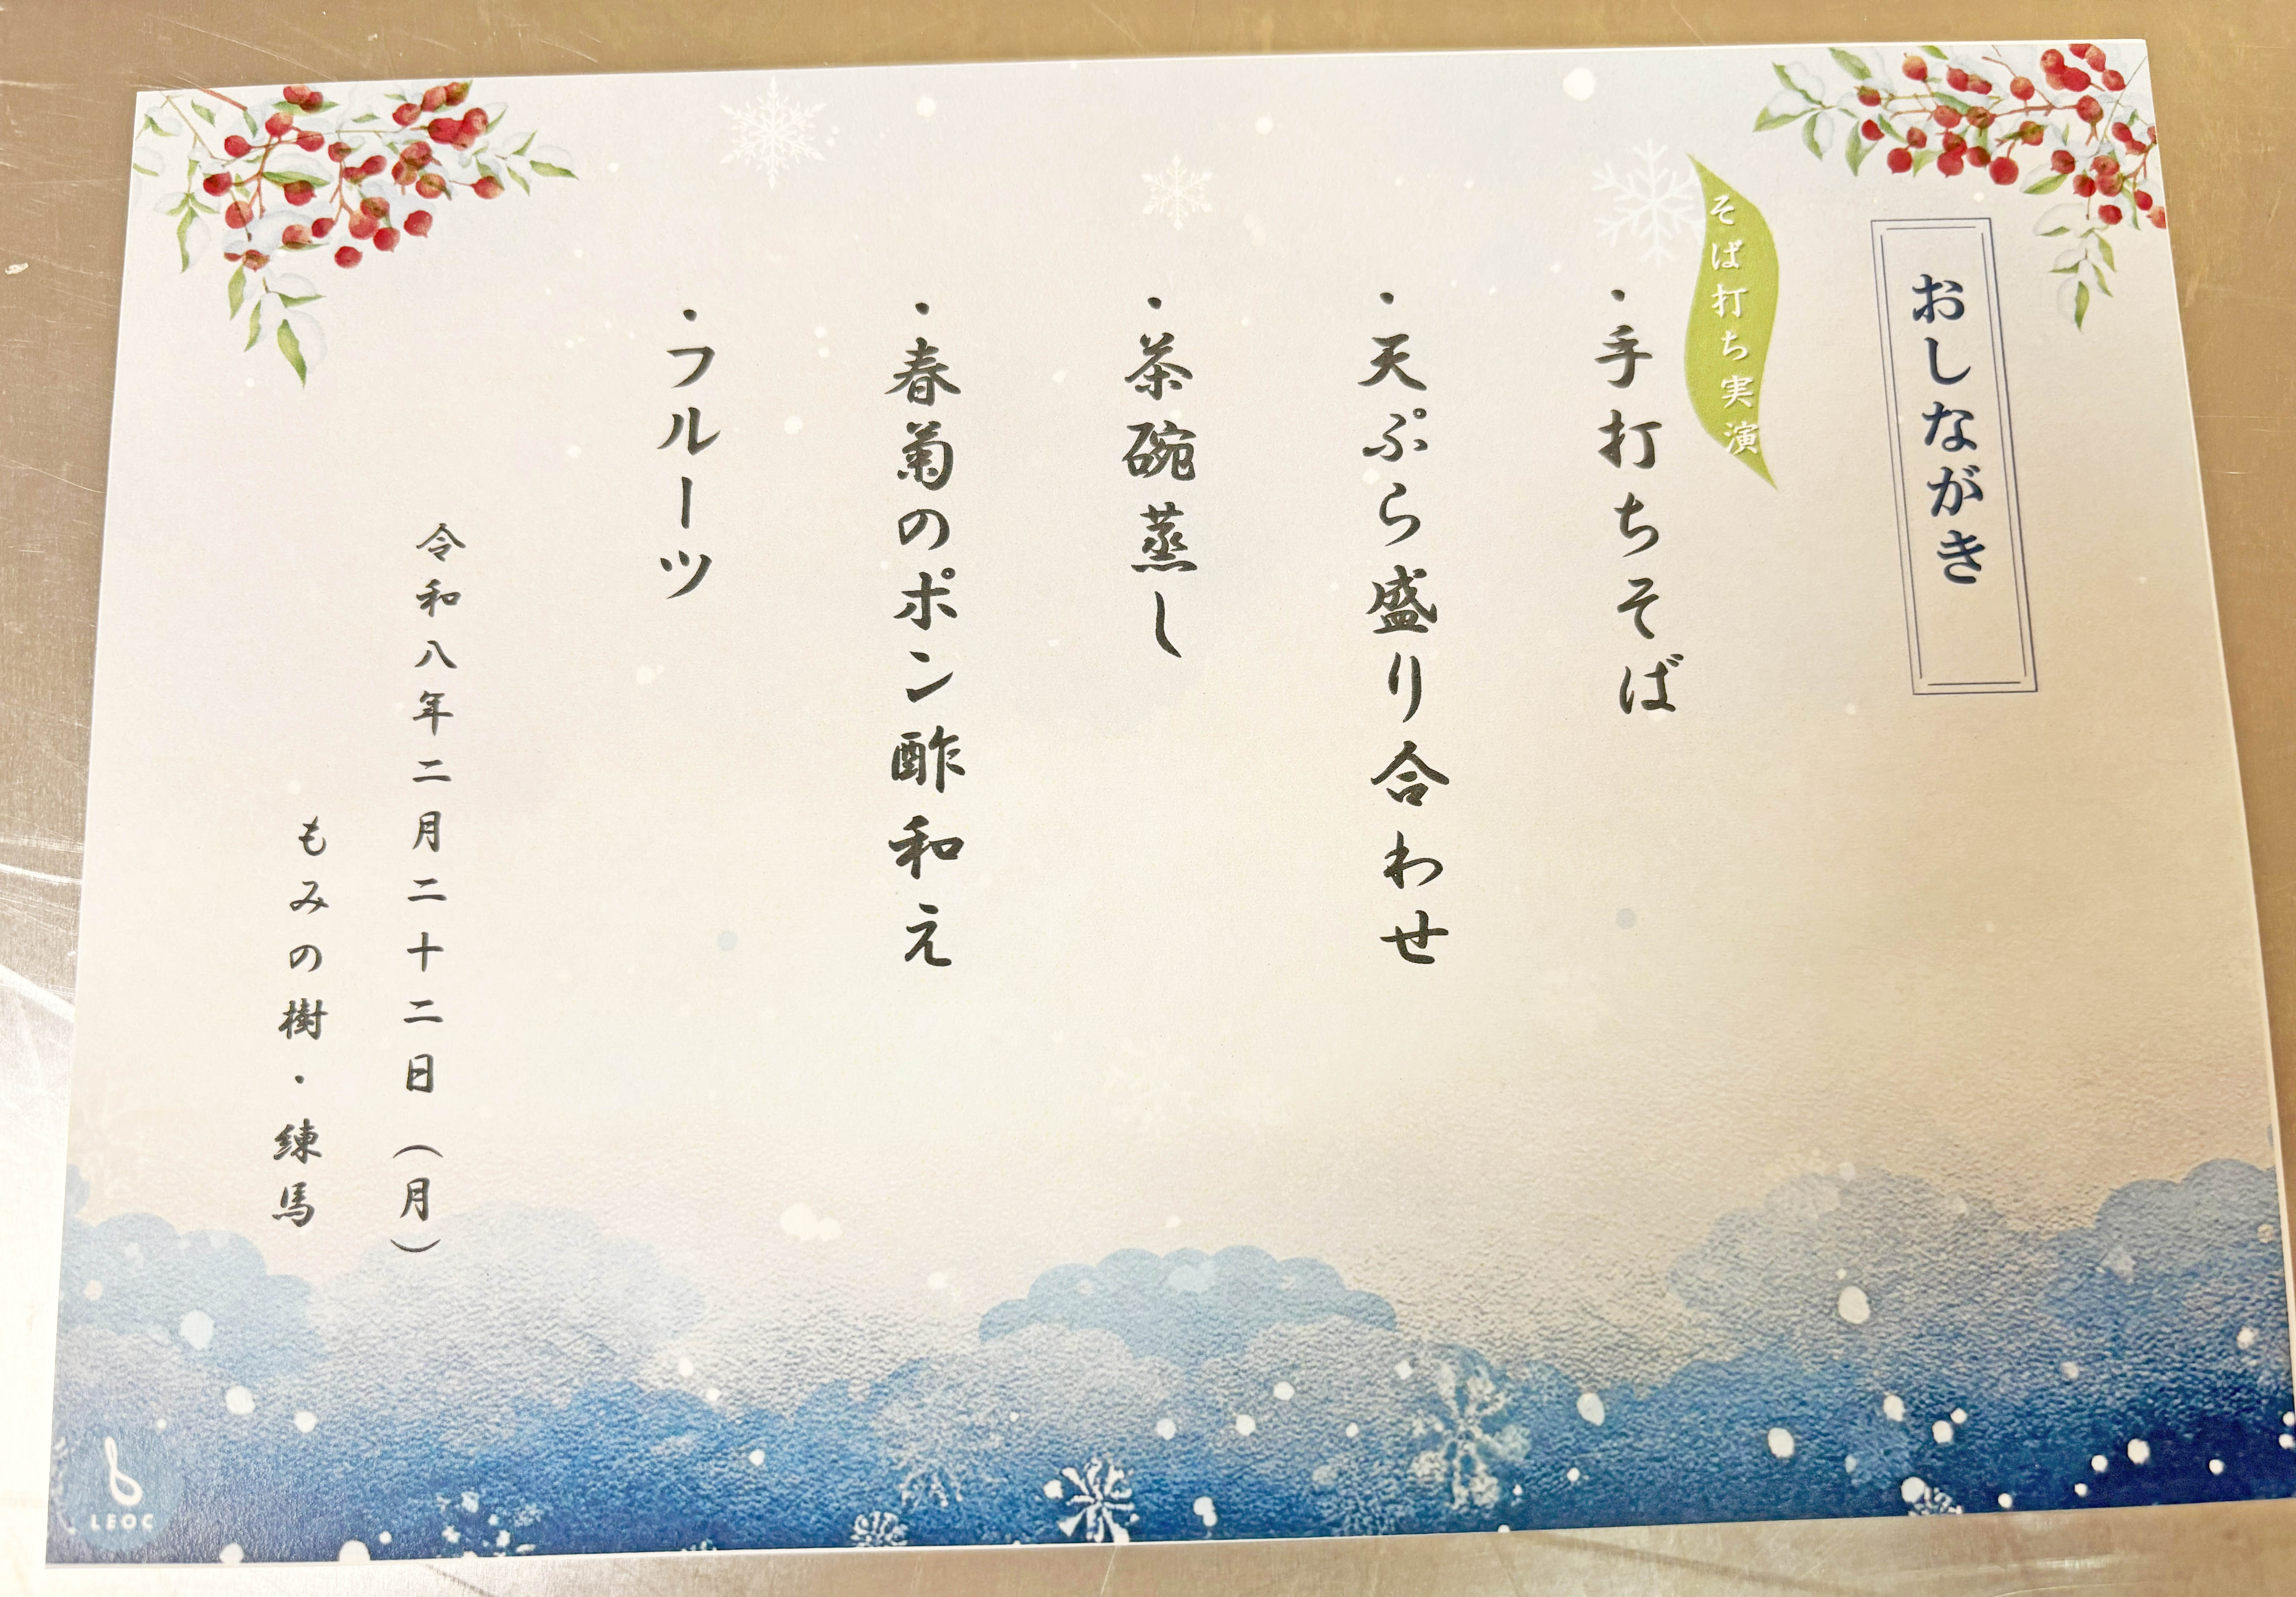 おしながき
そば打ち実演
・手打ちそば
・天ぷら盛り合わせ
・茶碗蒸し
・春菊のポン酢和え
・フルーツ
令和八年二月二十二日（月）
もみの樹・練馬
LEOC